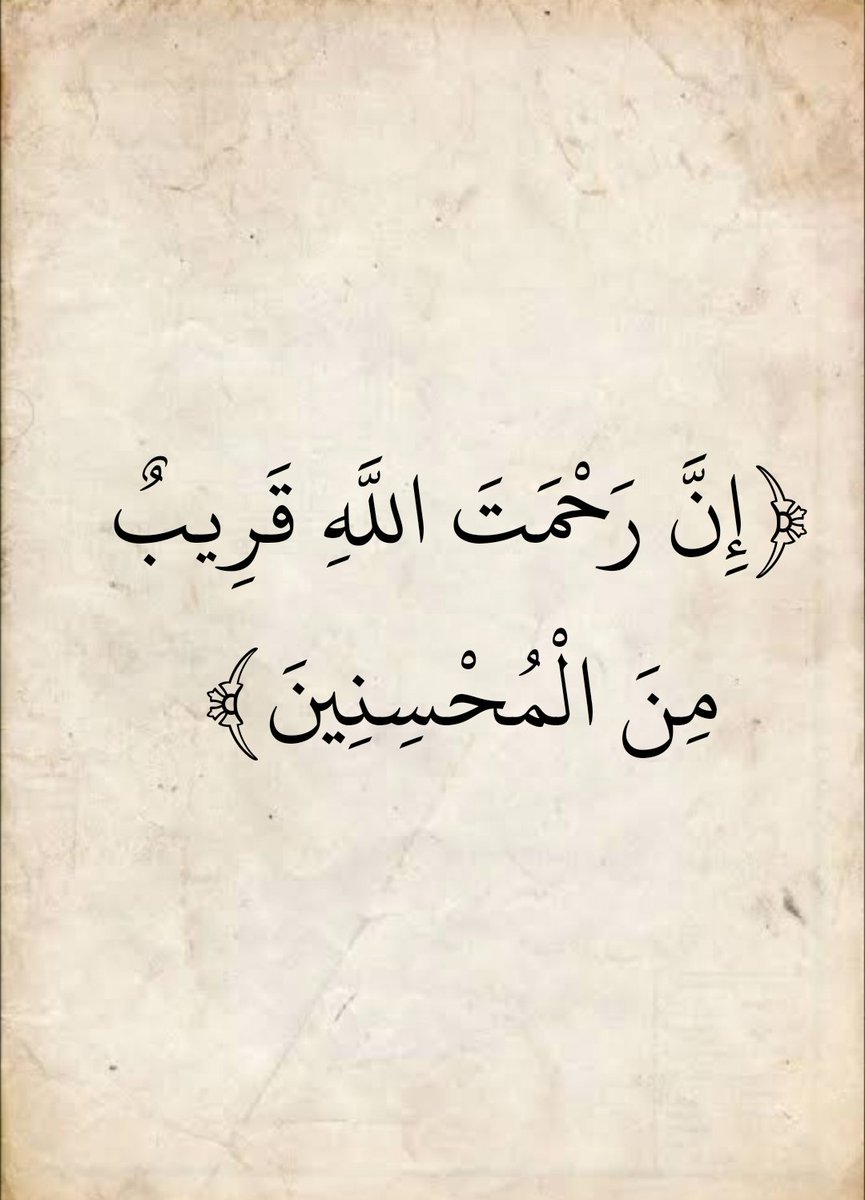 ﴿إِنَّ رَحْمَتَ اللَّهِ قَرِيبٌ
مِنَ الْمُحْسِنِينَ﴾